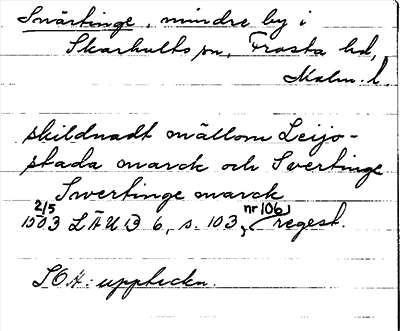 Svärtinge, mindre by i
Skarhults sn, Frosta hd,
Malm. l.
skildnadt mällom Leijo-
stada marck och Svertinge
Swertinge marck
2/5
1503 LÄUB 6, s. 103, (regest.
nr 106)
SOA: uppteckn.